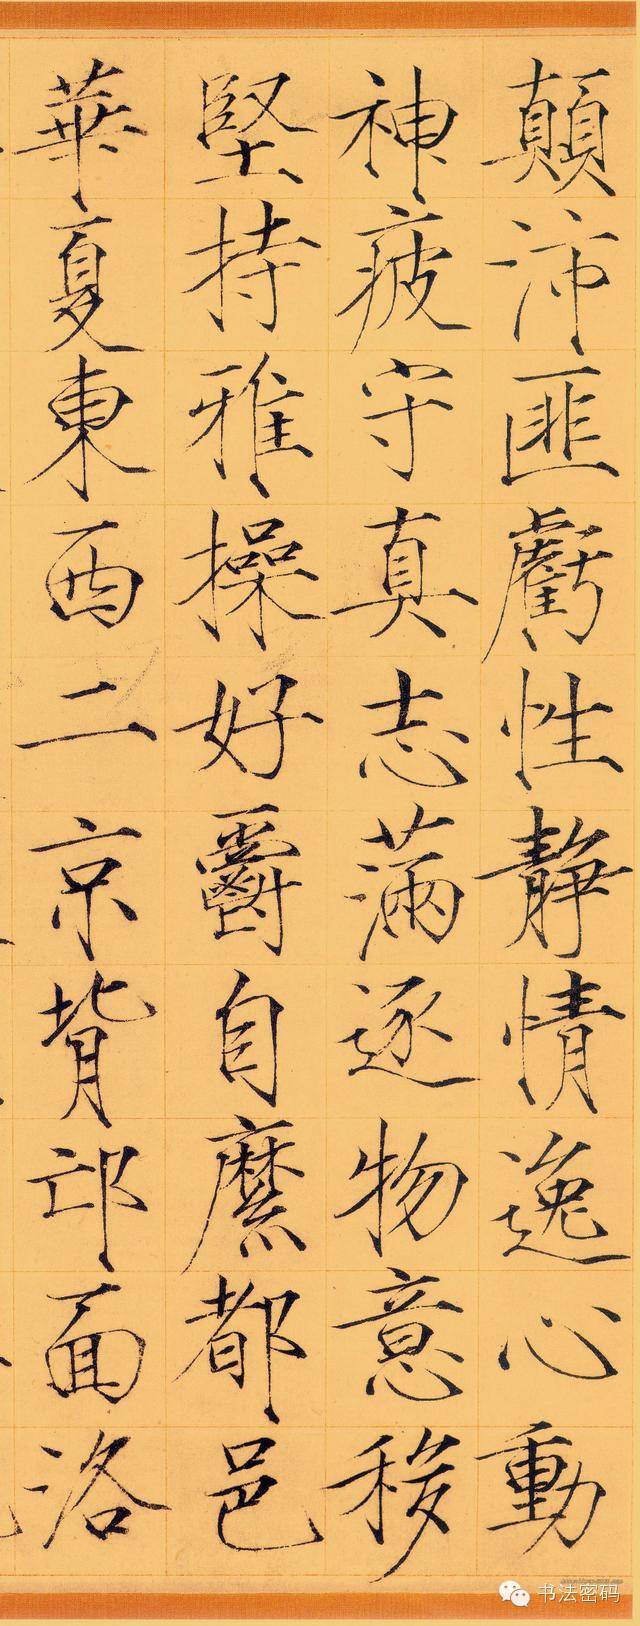 顛沛匪虧性靜情逸心動
神疲守真志滿逐物意移
堅持雅操好爵自縻都邑
華夏東西二京背邙面洛
书法密码